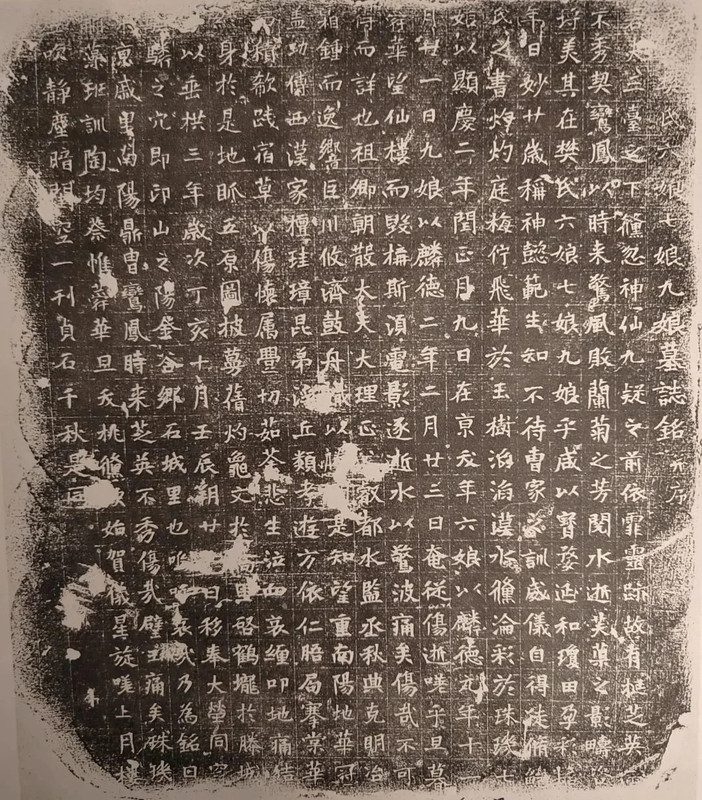 氏六娘七娘九娘墓誌銘并序
三臺之下儵忽神仙九疑之前依霏靈跡故有挺芝英
不秀契鸞鳳以時来驚風敗蘭菊之芳閱水逝芙蕖之影疇
美其在樊氏六娘七娘九娘乎咸以寶婺延和瓊田孕
日妙廿歲稱神懿範生知不待曹家之訓威儀自得徒脩
氏之書灼灼庭梅佇飛華於玉樹滔滔漢水儵淪彩於珠璣七
始以顯慶二年閏正月九日在京夭年六娘以麟德元年十一
月廿一日九娘以麟德二年二月廿三日奄從傷逝嗟乎旦暮
容華望仙樓而毀楄斯湏電影逐逝水以驚波痛矣傷哉不可
得而詳也祖卿朝散大夫大理正叡都水監丞秋典克明冶
相鍾而逸響巨川攸濟鼓舟以是知望重南陽地華冠
蓋幼傳西漢家種珪璋昆弟丘類芳遊方依仁昭局搴棠華
樹欷踐宿草以傷懷属舋切茹荼悲生泣血哀纏叩地痛結
身於是地眽五原圖披蒭蒨灼龜文於啓鶴壠於勝
以垂拱三年歲次丁亥十月壬辰朔廿日移奉大塋同空
驎之穴即邙山之陽金谷鄉石城里也哀哉乃為銘曰
戚里南陽鼎胄鸞鳳時来芝英不秀傷哉璧玉痛矣珠璣
藻班訓陶均蔡惟蕣華旦夭桃儵始賀儀星旋嗟上月樓
吹靜塵暗空一刊貞石千秋是同